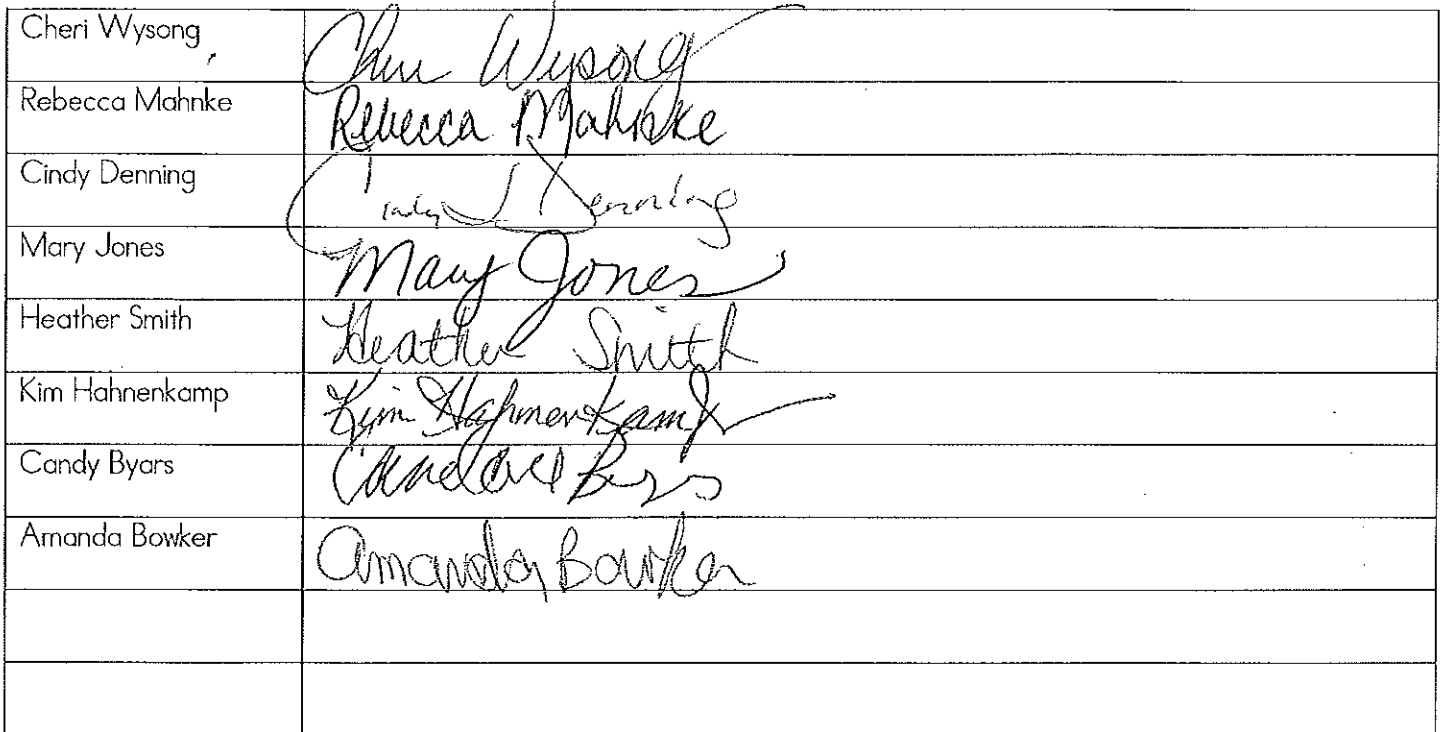 Cheri Wysong Cheri Wysong
Rebecca Mahnke Rebecca Mahnke
Cindy Denning Cindy J Denning
Mary Jones Mary Jones
Heather Smith Heather Smith
Kim Hahnenkamp Kim Hahnenkamp
Candy Byars Candace Byars
Amanda Bowker Amanda Bowker